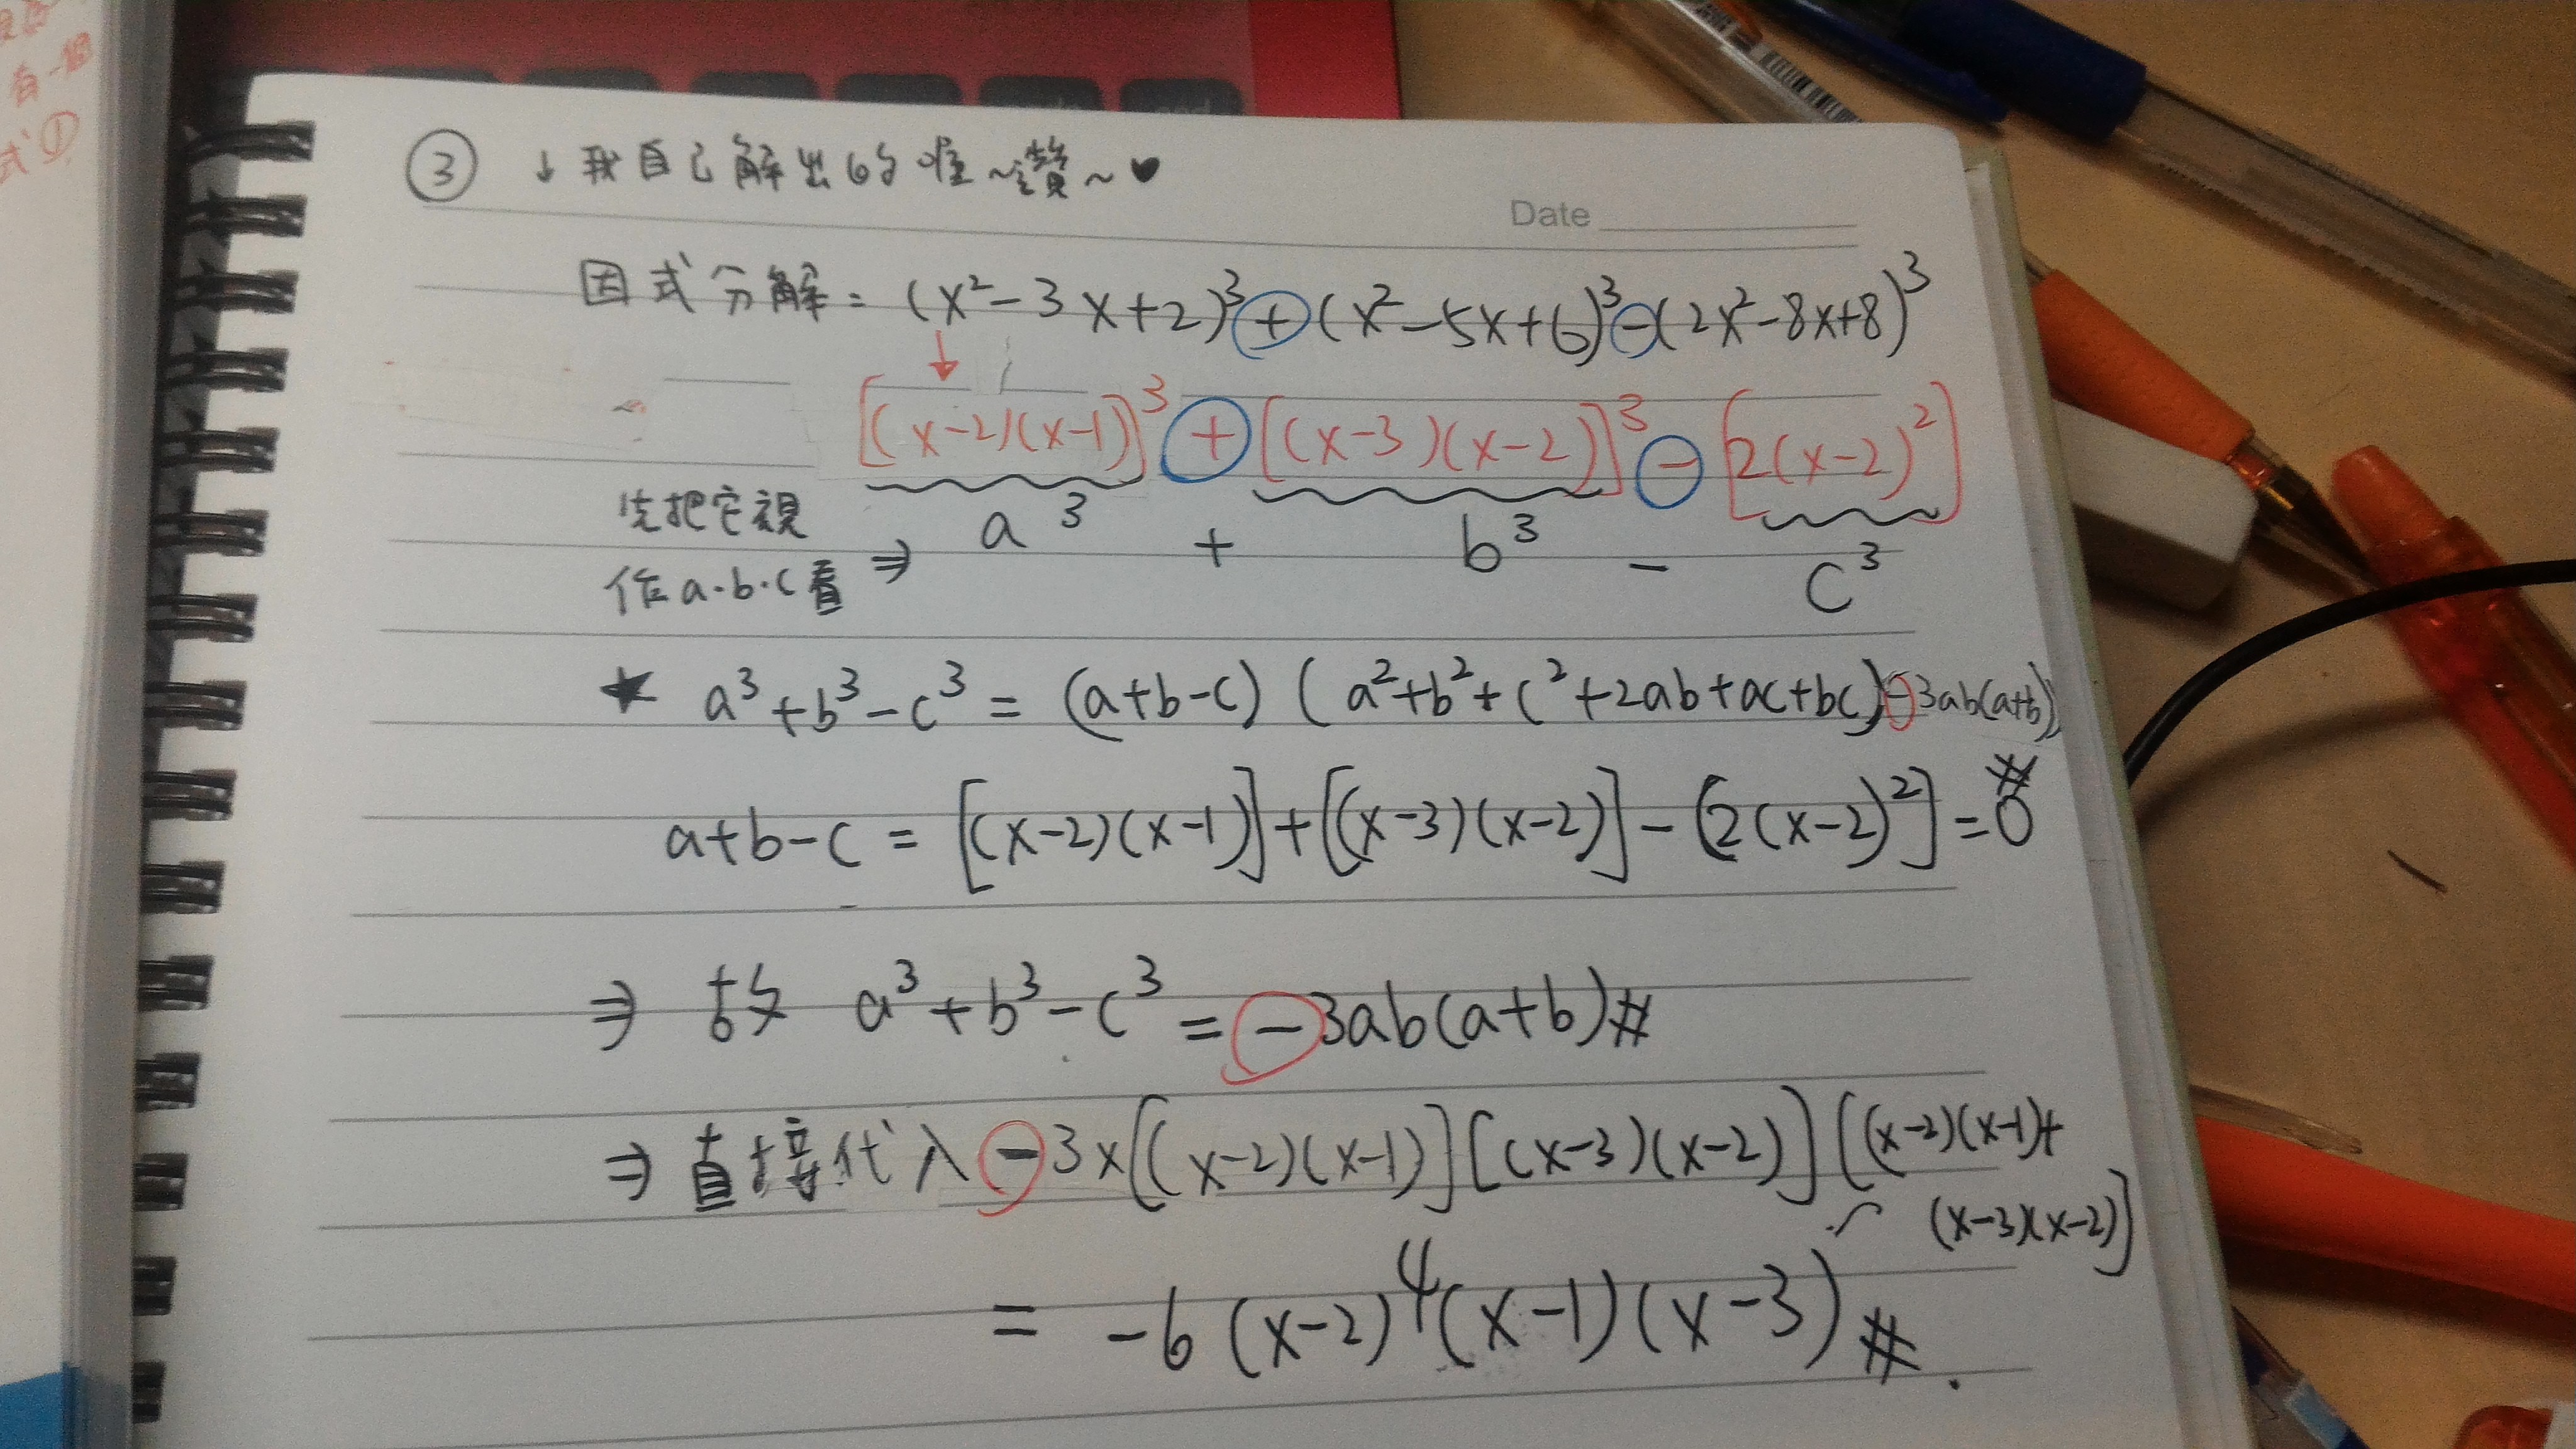 有一個
式①
③ ↓我自己解出的喔~讚~♥
Date
因式分解：(x²-3x+2)³+(x²-5x+6)³-(2x²-8x+8)³
↓
[(x-2)(x-1)]³+[(x-3)(x-2)]³-[2(x-2)²]
先把它視
作a.b.c看 ⇒ a³ + b³ - c³
★ a³+b³-c³=(a+b-c)(a²+b²+c²+2ab+ac+bc)-3ab(a+b))
a+b-c=[(x-2)(x-1)]+[(x-3)(x-2)]-[2(x-2)²]=0#
⇒ 故 a³+b³-c³=-3ab(a+b)#
⇒ 直接代入-3×[(x-2)(x-1)][(x-3)(x-2)][(x-2)(x-1)+
(x-3)(x-2)]
= -6(x-2)⁴(x-1)(x-3)#.